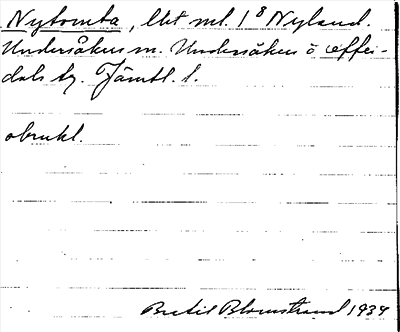 Nytomta, lht nr. 1⁸ Nyland.
Undersåkers sn. Undersåkers o Offer-
dals tg. Jämtl. l.
obrukl.
Bertil Blomstrand 1934